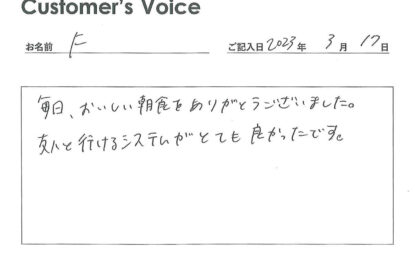 Customer's Voice
お名前 ご記入日 2023年 3月 17日
毎日、おいしい朝食をありがとうございました。
友人と行けるシステムがとても良かったです。